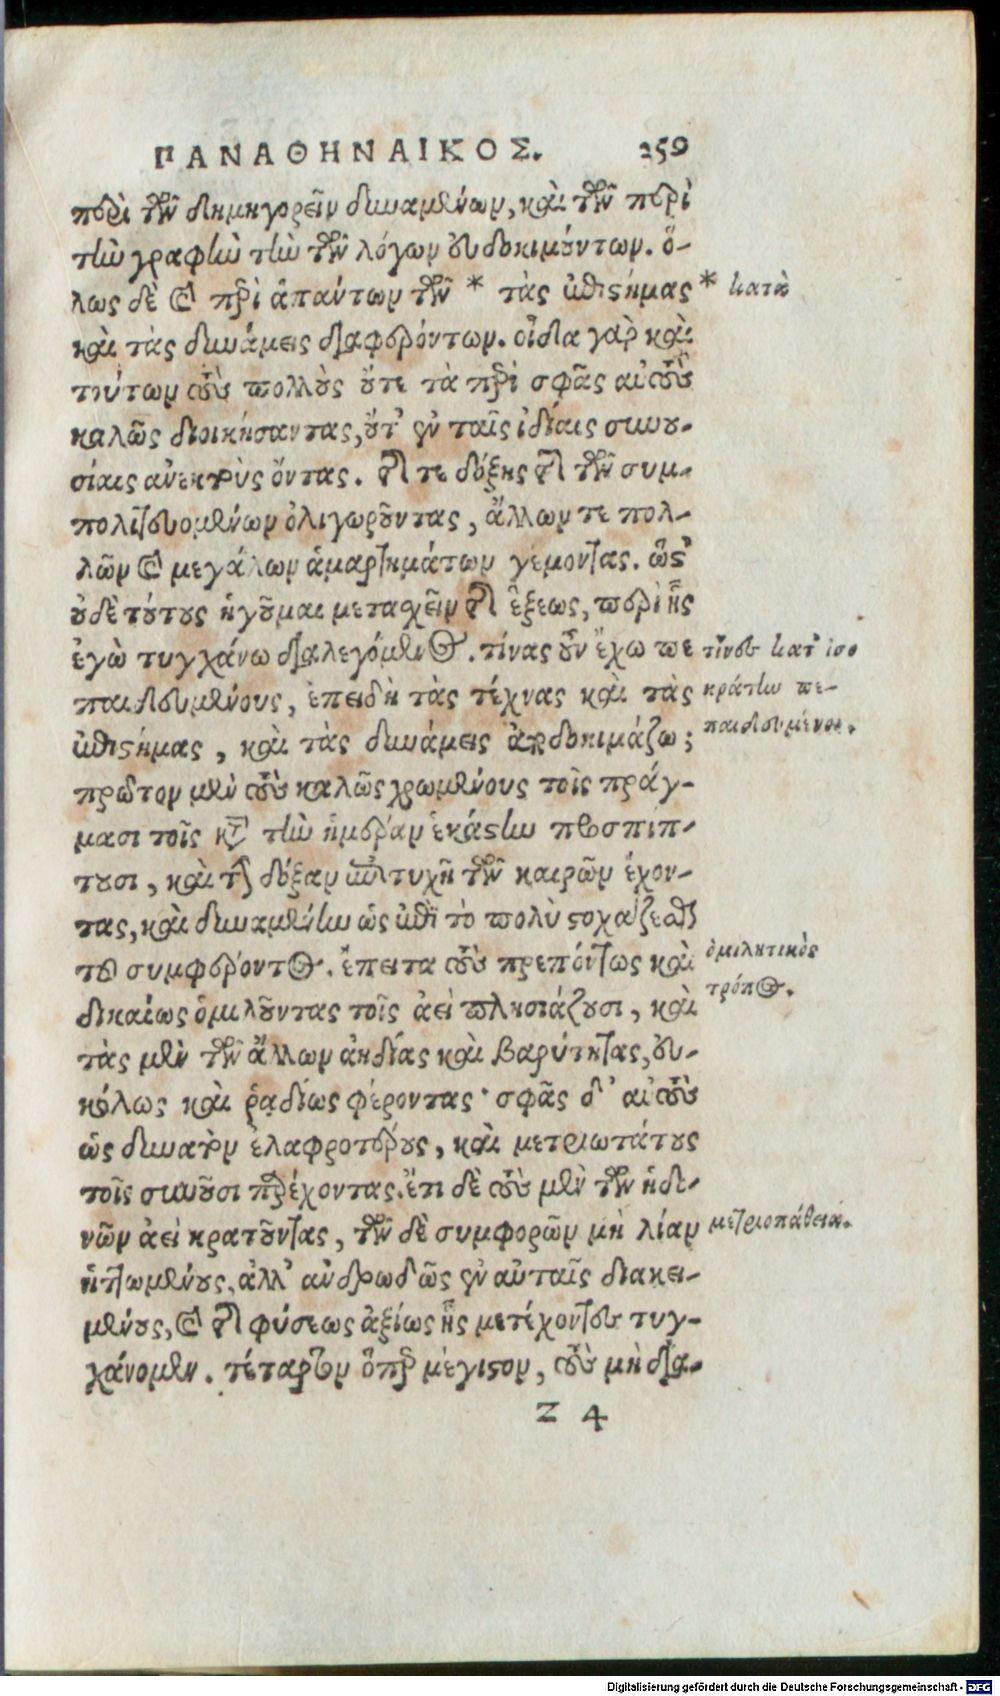 ΠΑΝΑΘΗΝΑΙΚΟΣ. 359
περὶ τῶν δημηγορεῖν δυναμένων, καὶ τῶν περὶ
τὴν γραφὴν τὴν τῶν λόγων εὐδοκιμούντων. ὅ-
λως δὲ καὶ περὶ ἁπάντων τῶν * τὰς ἐπιστήμας * κατὰ
καὶ τὰς δυνάμεις διαφερόντων. οἶδα γὰρ καὶ
τούτων τοὺς πολλοὺς οὔτε τὰ περὶ σφᾶς αὐτοὺς
καλῶς διοικήσαντας, οὔτ' ἐν ταῖς ἰδίαις συνου-
σίαις ἀνεκτοὺς ὄντας. τῆς τε δόξης τῆς τῶν συμ-
πολιτευομένων ὀλιγωροῦντας, ἄλλων τε πολ-
λῶν καὶ μεγάλων ἁμαρτημάτων γέμοντας. ὥστ'
οὐδὲ τούτους ἡγοῦμαι μετασχεῖν τῆς ἕξεως, περὶ ἧς
ἐγὼ τυγχάνω διαλεγόμενος. τίνας οὖν ἔχω πε
παιδευμένους, ἐπειδὴ τὰς τέχνας καὶ τὰς
ἐπιστήμας, καὶ τὰς δυνάμεις ἀποδοκιμάζω;
τίνες κατ' ἰσο
κράτην πε-
παιδευμένοι.
πρῶτον μὲν τοὺς καλῶς χρωμένους τοῖς πράγ-
μασι τοῖς κατὰ τὴν ἡμέραν ἑκάστην προσπίπ-
τουσι, καὶ τὴν δόξαν ἐπιτυχῆ τῶν καιρῶν ἔχον-
τας, καὶ δυναμένην ὡς ἐπὶ τὸ πολὺ στοχάζεσθαι
τοῦ συμφέροντος. ἔπειτα τοὺς πρεπόντως καὶ
δικαίως ὁμιλοῦντας τοῖς ἀεὶ πλησιάζουσι, καὶ
ὁμιλητικὸς
τρόπος.
τὰς μὲν τῶν ἄλλων ἀηδίας καὶ βαρύτητας, εὐ-
κόλως καὶ ῥᾳδίως φέροντας· σφᾶς δ' αὐτοὺς
ὡς δυνατὸν ἐλαφροτέρους, καὶ μετριωτάτους
τοῖς συνοῦσι παρέχοντας. ἔτι δὲ τοὺς μὲν τῶν ἡδο-
νῶν ἀεὶ κρατοῦντας, τῶν δὲ συμφορῶν μὴ λίαν
μετριοπάθεια.
ἡττωμένους, ἀλλ' ἀνδρωδῶς ἐν αὐταῖς διακει-
μένους, καὶ τῆς φύσεως ἀξίως ἧς μετέχοντες τυγ-
χάνομεν. τέταρτον ὅπερ μέγιστον, τοὺς μὴ δια-
Z 4
Digitalisierung gefördert durch die Deutsche Forschungsgemeinschaft - DFG